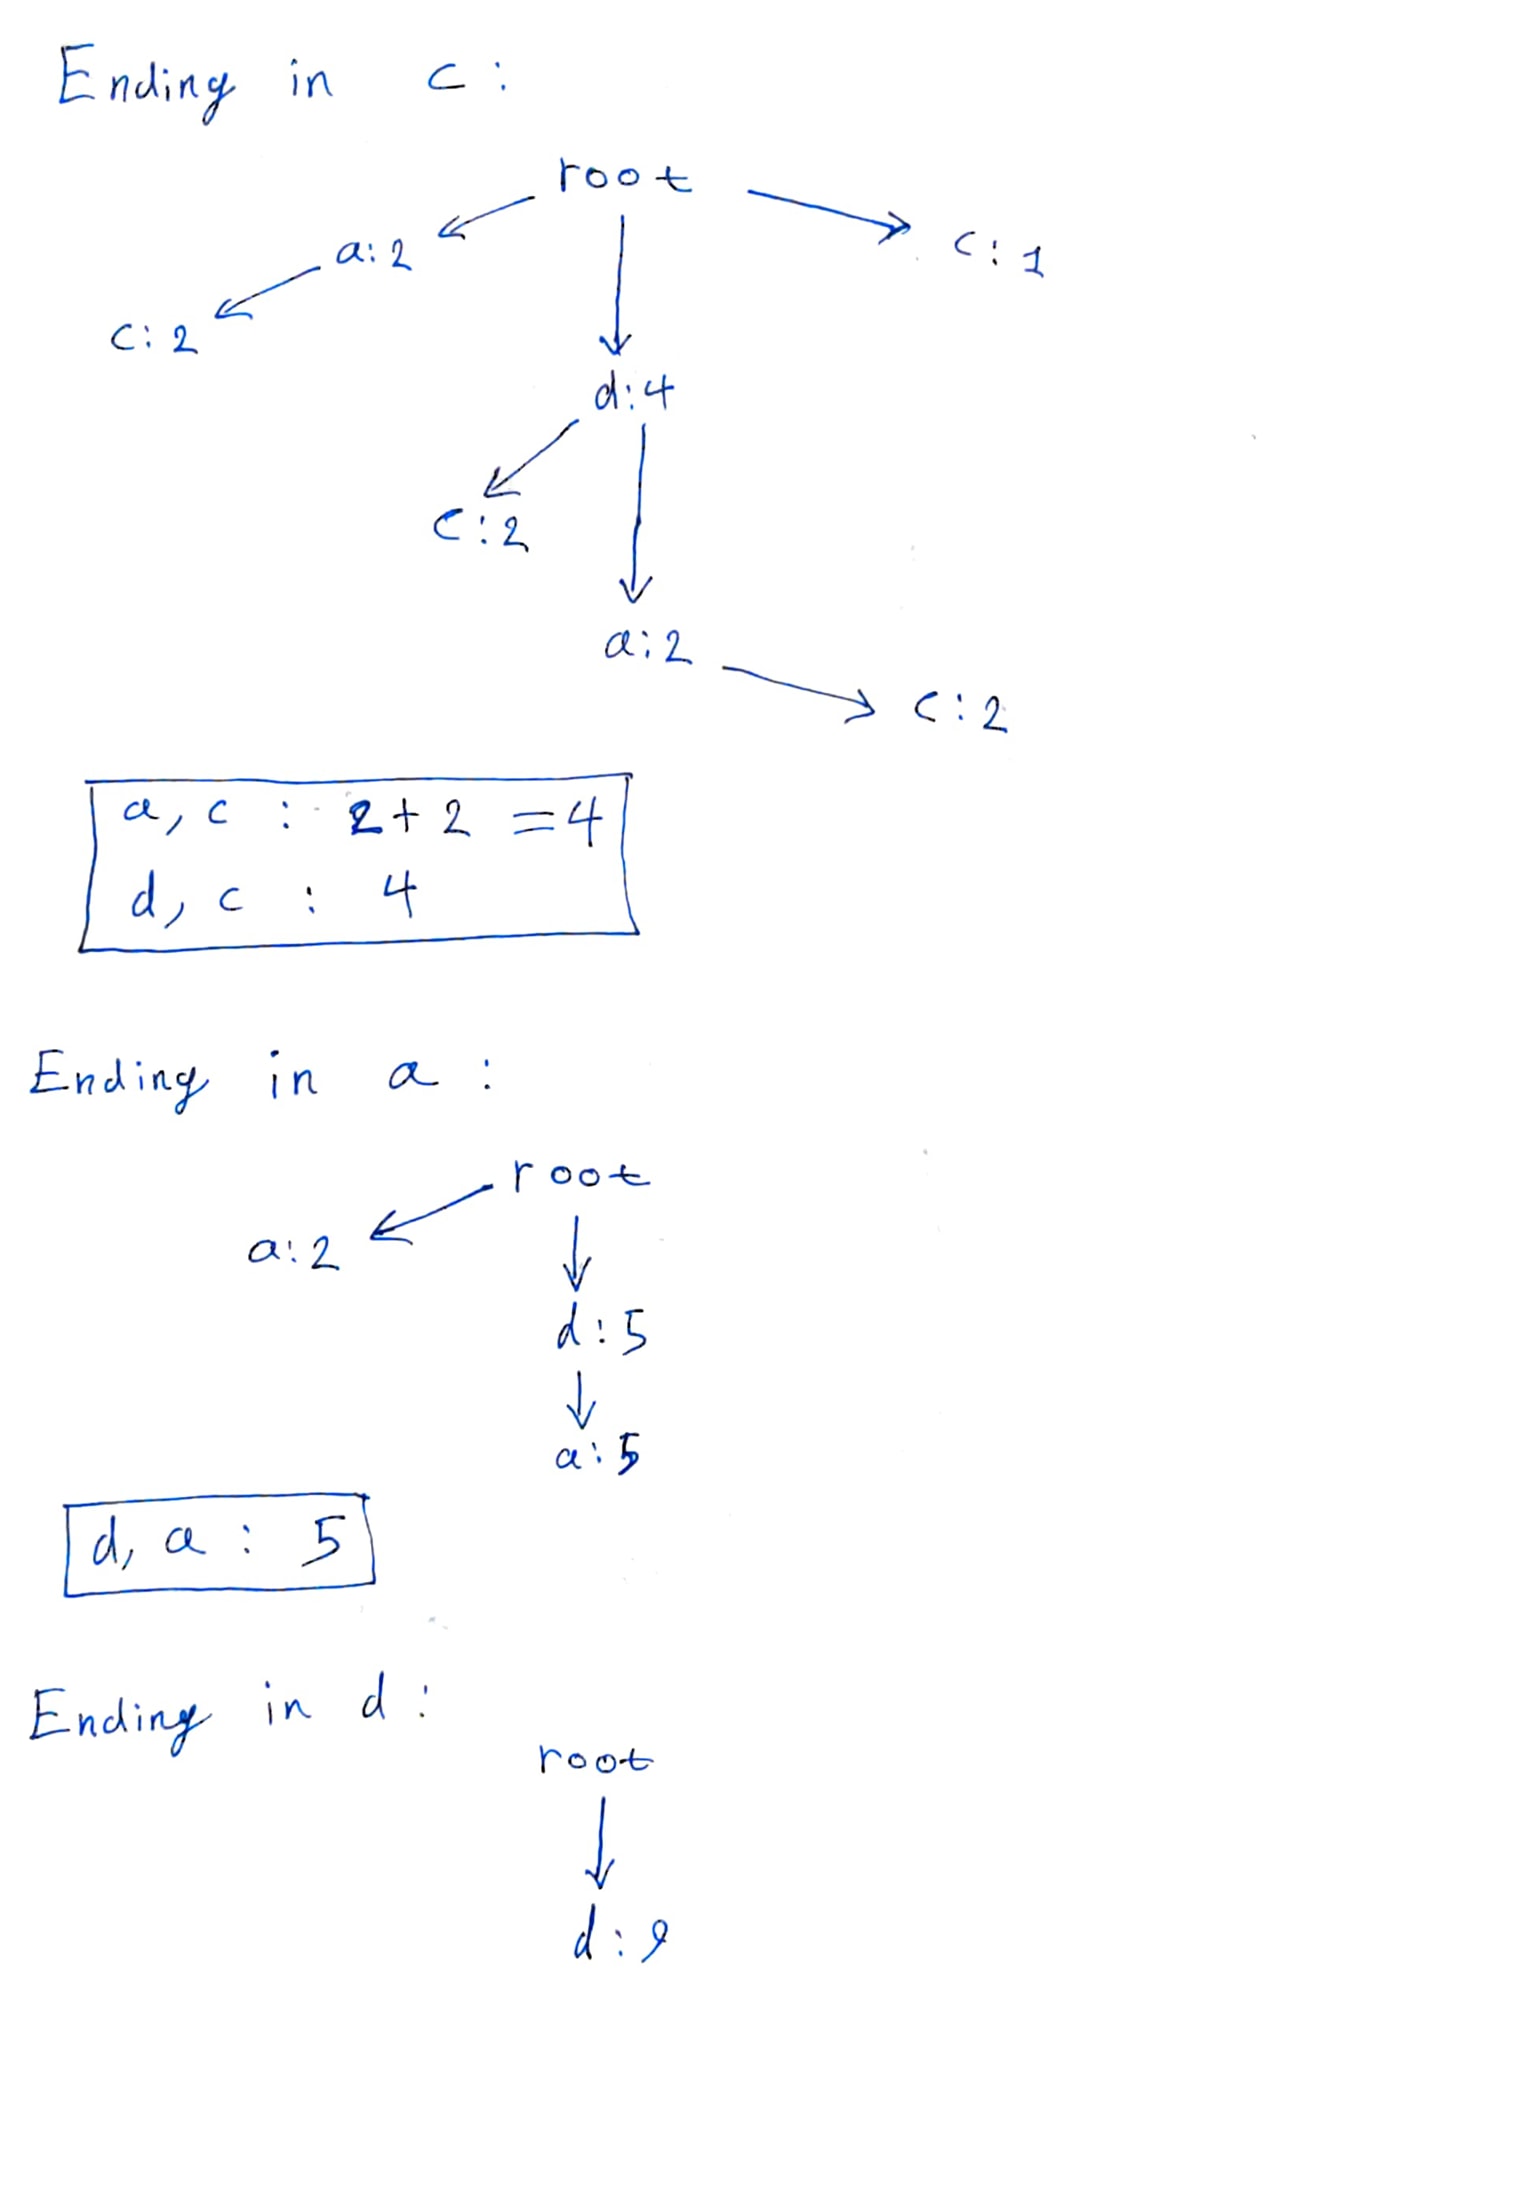 Ending in c :
root
a:2
c:1
c:2
d:4
c:2
a:2
c:2
a, c : 2+2 =4
d, c : 4
Ending in a :
root
a:2
d:5
a:5
d, a : 5
Ending in d :
root
d:9